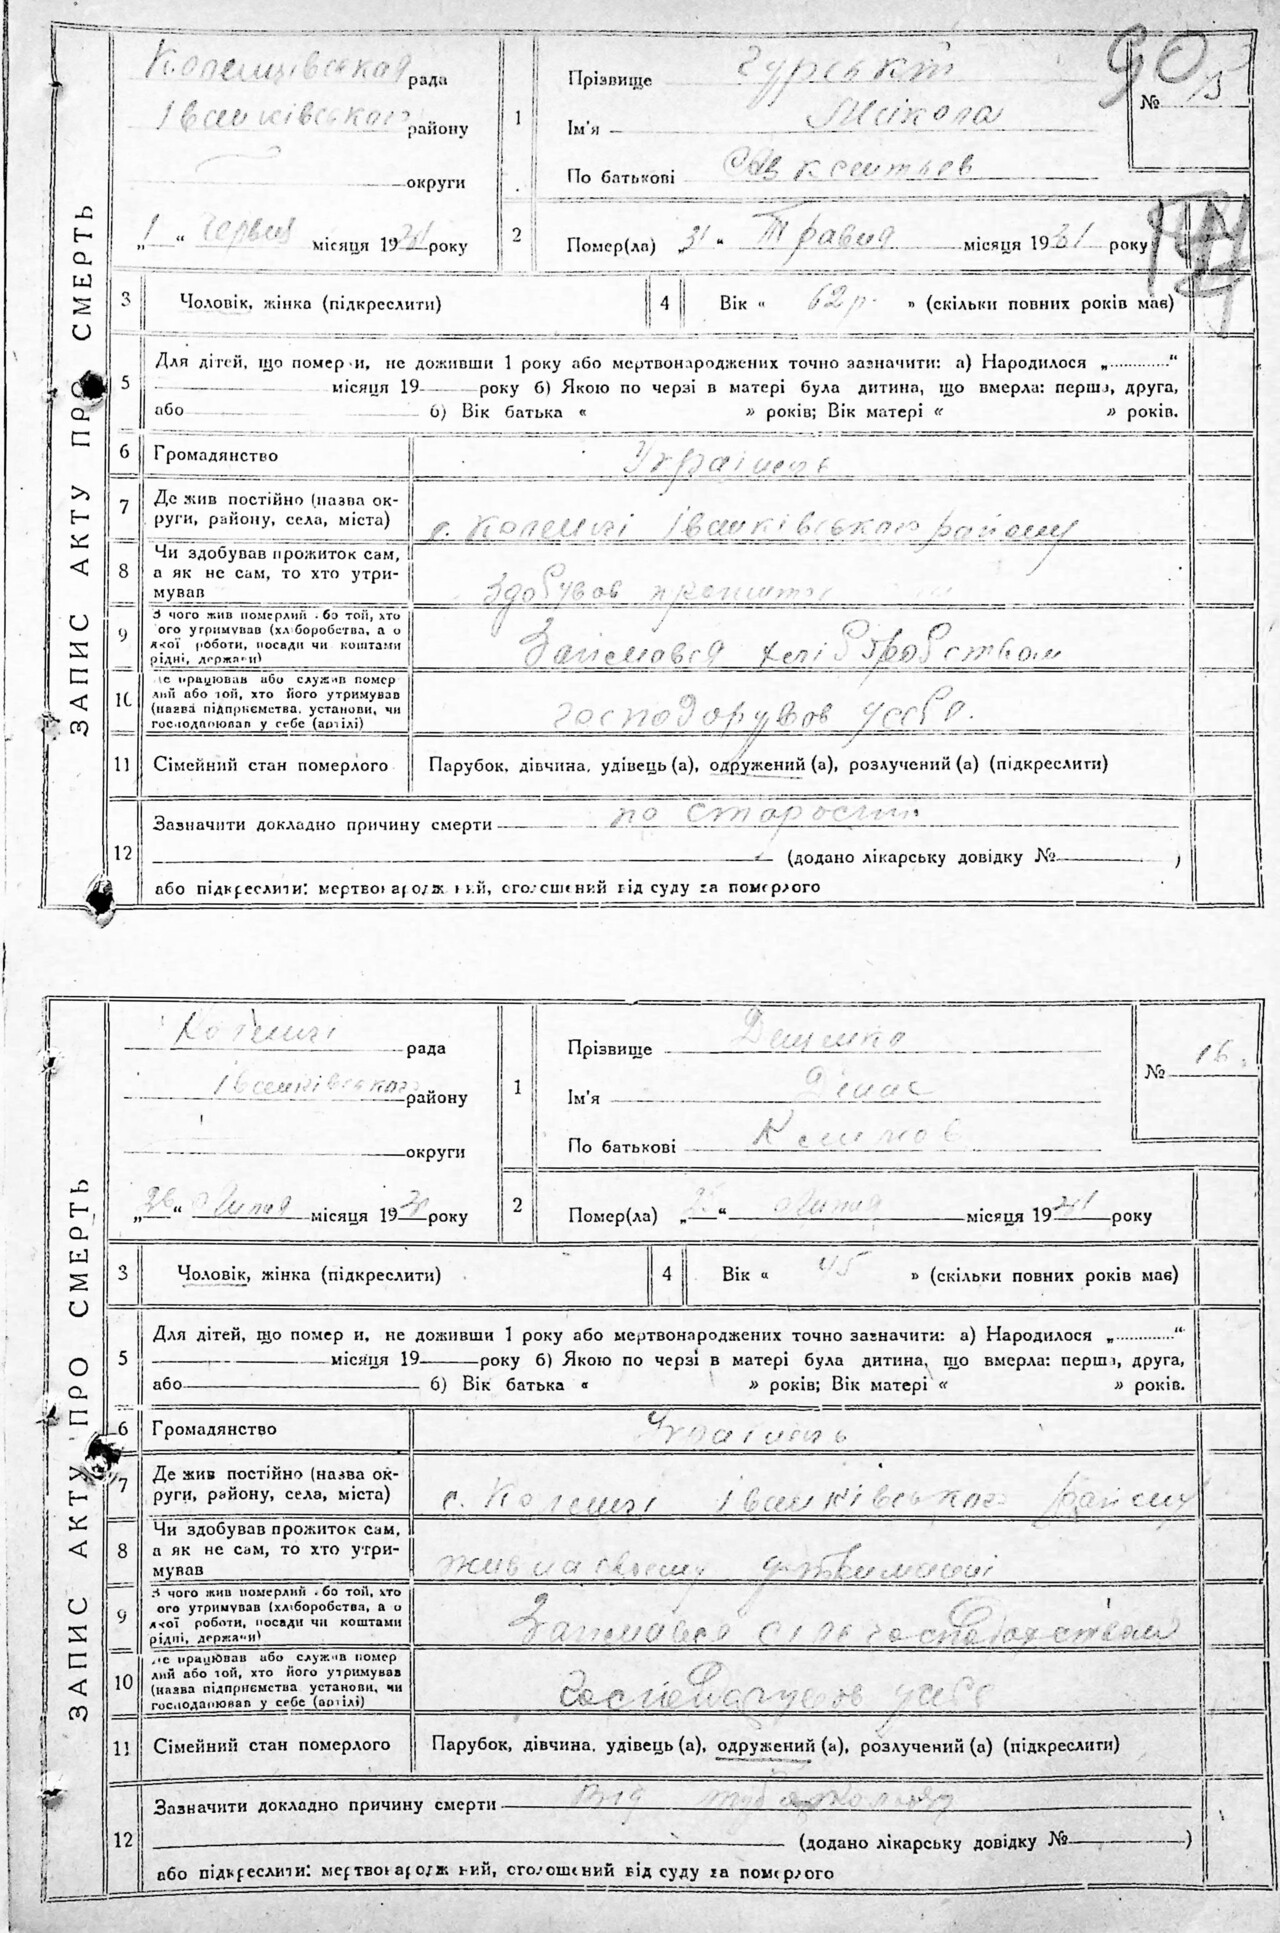 ЗАПИС АКТУ ПРО СМЕРТЬ
рада
Іванківського району
округи
„1“ червня місяця 1931 року
1 Прізвище Гурський
Ім'я Микола
По батькові
№
90
2 Помер(ла) 31 “ Травня місяця 1931 року
3 Чоловік, жінка (підкреслити)
4 Вік « 62 р. » (скільки повних років має)
5 Для дітей, що померли, не доживши 1 року або мертвонароджених точно зазначити: а) Народилося „............“
місяця 19 року б) Якою по черзі в матері була дитина, що вмерла: перша, друга,
або б) Вік батька « » років; Вік матері « » років.
6 Громадянство Українець
7 Де жив постійно (назва ок-
руги, району, села, міста) с. Коленці Іванківського району
8 Чи здобував прожиток сам,
а як не сам, то хто утри-
мував здобував
9 З чого жив померлий або той, хто
його утримував (хліборобства, з
якої роботи, посади чи коштами
рідні, держави) Займався хліборобством
10 Де працював або служив помер
лий або той, хто його утримував
(назва підприємства, установи, чи
господарював у себе (артілі) господарував у себе.
11 Сімейний стан померлого Парубок, дівчина, удівець (а), одружений (а), розлучений (а) (підкреслити)
12 Зазначити докладно причину смерти по старости
(додано лікарську довідку № )
або підкреслити: мертвонароджений, оголошений від суду за померлого
ЗАПИС АКТУ ПРО СМЕРТЬ
Коленці рада
Іванківського району
округи
„26“ Липня місяця 1931 року
1 Прізвище Дященко
Ім'я
По батькові Климов
№ 16.
2 Помер(ла) „25“ Липня місяця 1931 року
3 Чоловік, жінка (підкреслити)
4 Вік « 45 » (скільки повних років має)
5 Для дітей, що померли, не доживши 1 року або мертвонароджених точно зазначити: а) Народилося „............“
місяця 19 року б) Якою по черзі в матері була дитина, що вмерла: перша, друга,
або б) Вік батька « » років; Вік матері « » років.
6 Громадянство Українець
7 Де жив постійно (назва ок-
руги, району, села, міста) с. Коленці Іванківського району
8 Чи здобував прожиток сам,
а як не сам, то хто утри-
мував жив на своєму утриманні
9 З чого жив померлий або той, хто
його утримував (хліборобства, з
якої роботи, посади чи коштами
рідні, держави) Займався господарством
10 Де працював або служив помер
лий або той, хто його утримував
(назва підприємства, установи, чи
господарював у себе (артілі) господарував у себе
11 Сімейний стан померлого Парубок, дівчина, удівець (а), одружений (а), розлучений (а) (підкреслити)
12 Зазначити докладно причину смерти від
(додано лікарську довідку № )
або підкреслити: мертвонароджений, оголошений від суду за померлого